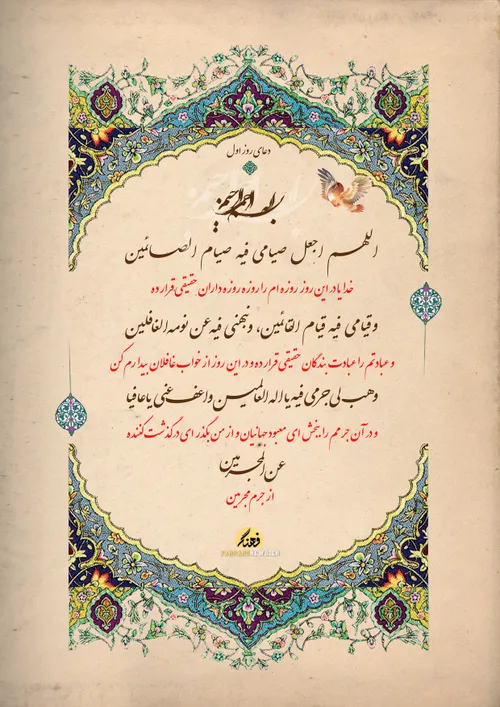 دعای روز اول
بسم الله الرحمن الرحیم
اللهم اجعل صیامی فیه صیام الصائمین
خدایا در این روز روزه ام را روزه روزه داران حقیقی قرار ده
وقیامی فیه قیام القائمین، ونبهنی فیه عن نومه الغافلین
و عبادتم را عبادت بندگان حقیقی قرار ده و در این روز از خواب غافلان بیدارم کن
وهب لی جرمی فیه یا اله العالمین واعف عنی یا عافیا
و در آن جرمم را ببخش ای معبود جهانیان و از من بگذر ای درگذشت کننده
عن المجرمین
از جرم مجرمین
فرهنگ